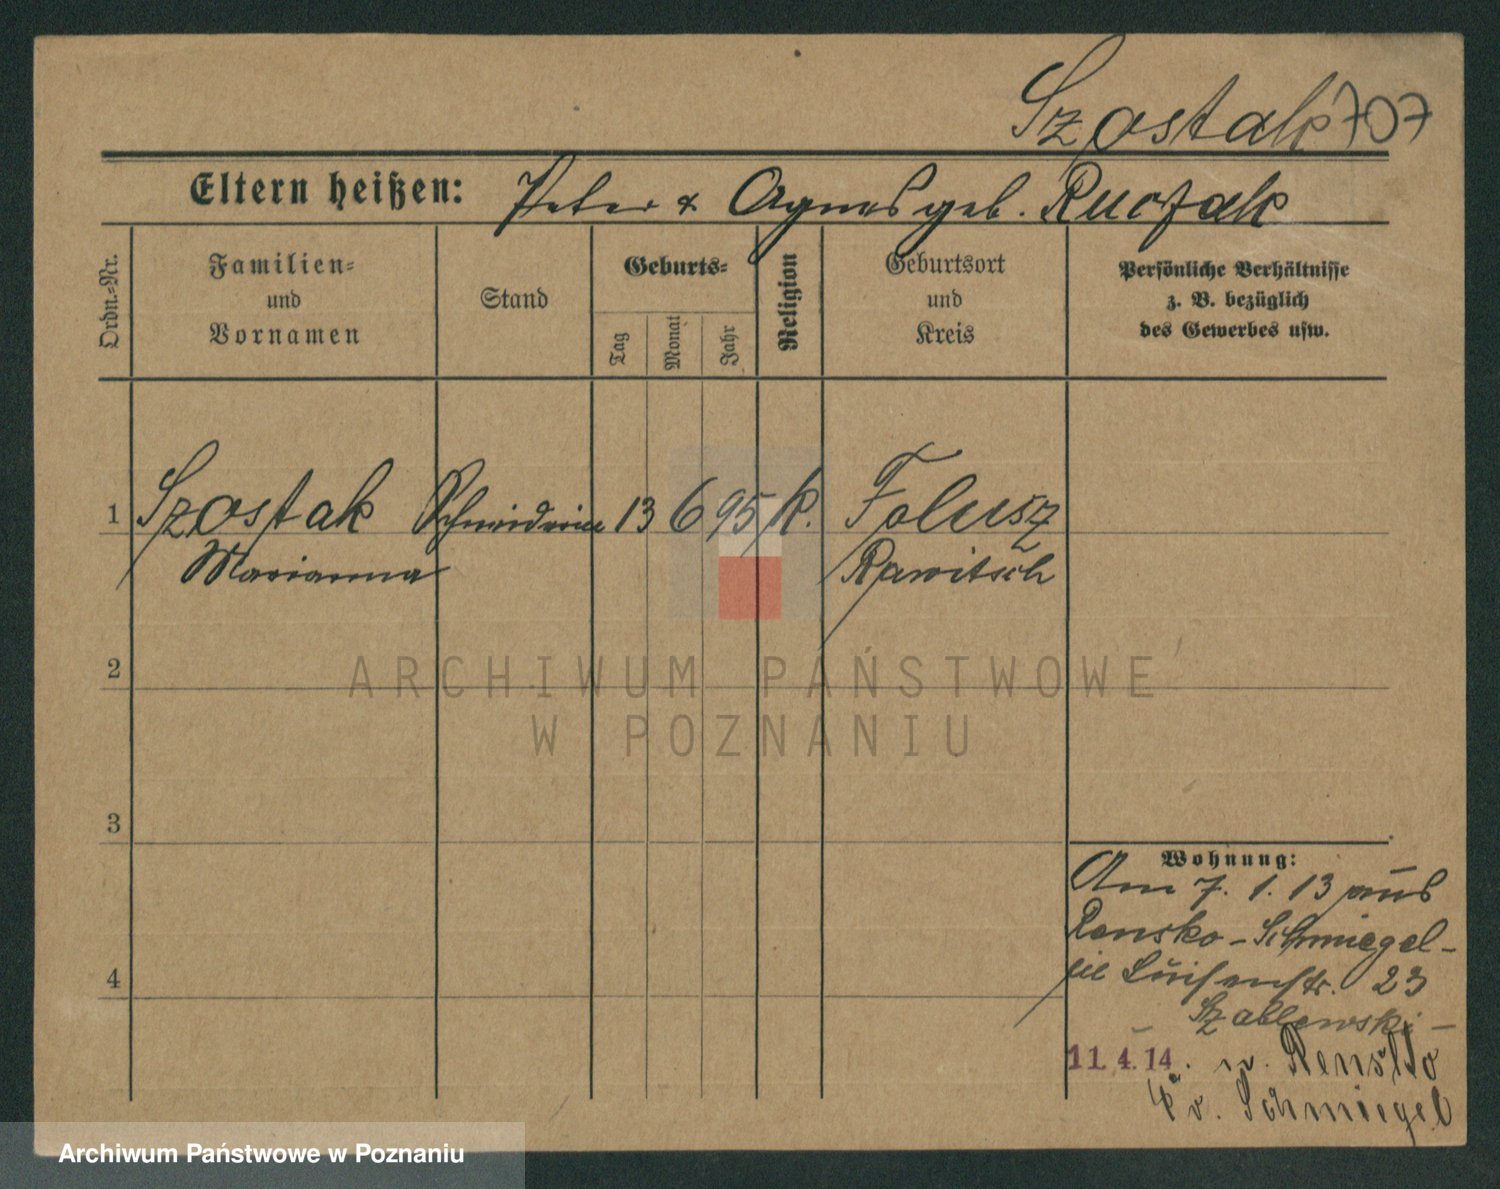 Szostak 707
Eltern heißen: Peter & Agnes geb. Ruczak
Ordn.-Nr.
Familien-
und
Vornamen
Stand
Geburts-
Tag
Monat
Jahr
Religion
Geburtsort
und
Kreis
Persönliche Verhältnisse
z. B. bezüglich
des Gewerbes usw.
1 Szostak Schneiderin 13 6 95 k. Folusz
Marianna Rawitsch
2
3
4
Wohnung:
Am 7. 1. 13 aus
Rensko-Schmiegel-
Luisenstr. 23
Szablewski-
11.4.14. n. Rensko
Schmiegel
ARCHIWUM PAŃSTWOWE
W POZNANIU
Archiwum Państwowe w Poznaniu